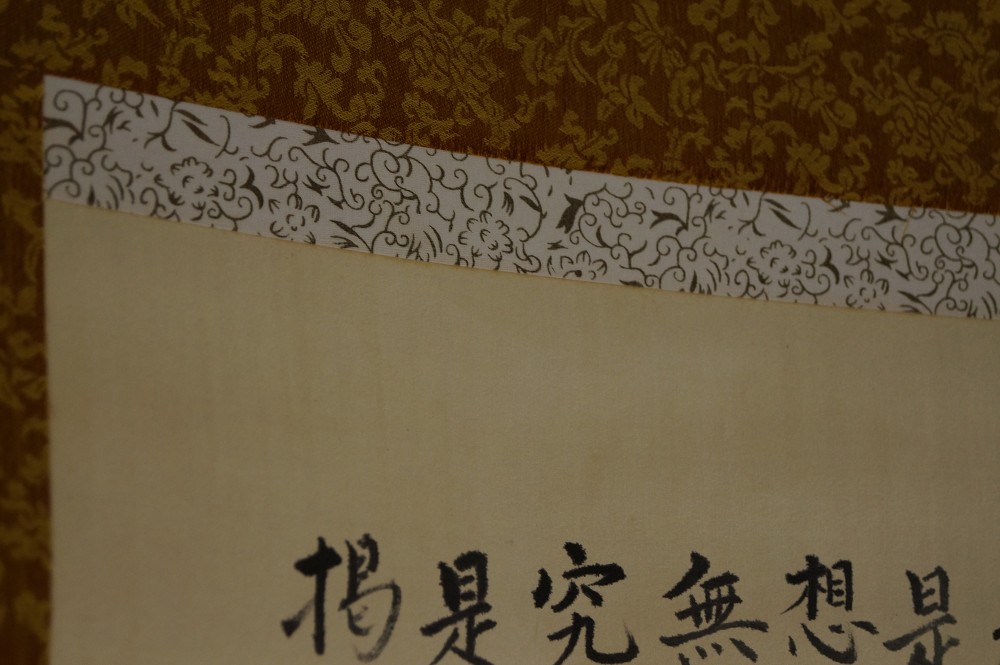 是
想
無
究
是
揭